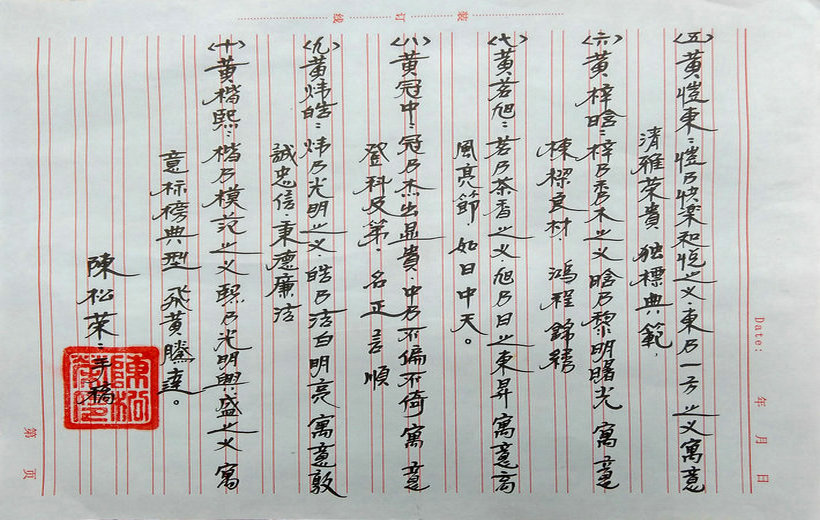 装 订 线
Date: 年 月 日
〈五〉黄愷東：愷乃快楽和悦之义·東乃一方之义寓意
清雅荣貴 独標典範，
〈六〉黄梓晗：梓乃秀木之义 晗乃黎明曙光 寓意
棟樑良材，鴻程錦綉
〈七〉黄茗旭：茗乃茶香之义·旭乃日之東昇 寓意高
風亮節，如日中天。
〈八〉黄冠中：冠乃杰出显貴·中乃不偏不倚 寓意
登科及第·名正言順
〈九〉黄炜皓：炜乃光明之义·皓乃洁白明亮 寓意敦
誠忠信·秉德廉洁
〈十〉黄楷熙：楷乃模范之义 熙乃光明興盛之义 寓
意标榜典型 飛黄騰達。
陳松荣：手稿
第 页